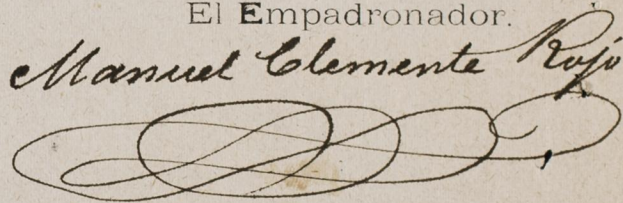 El Empadronador.
Manuel Clemente Rojo